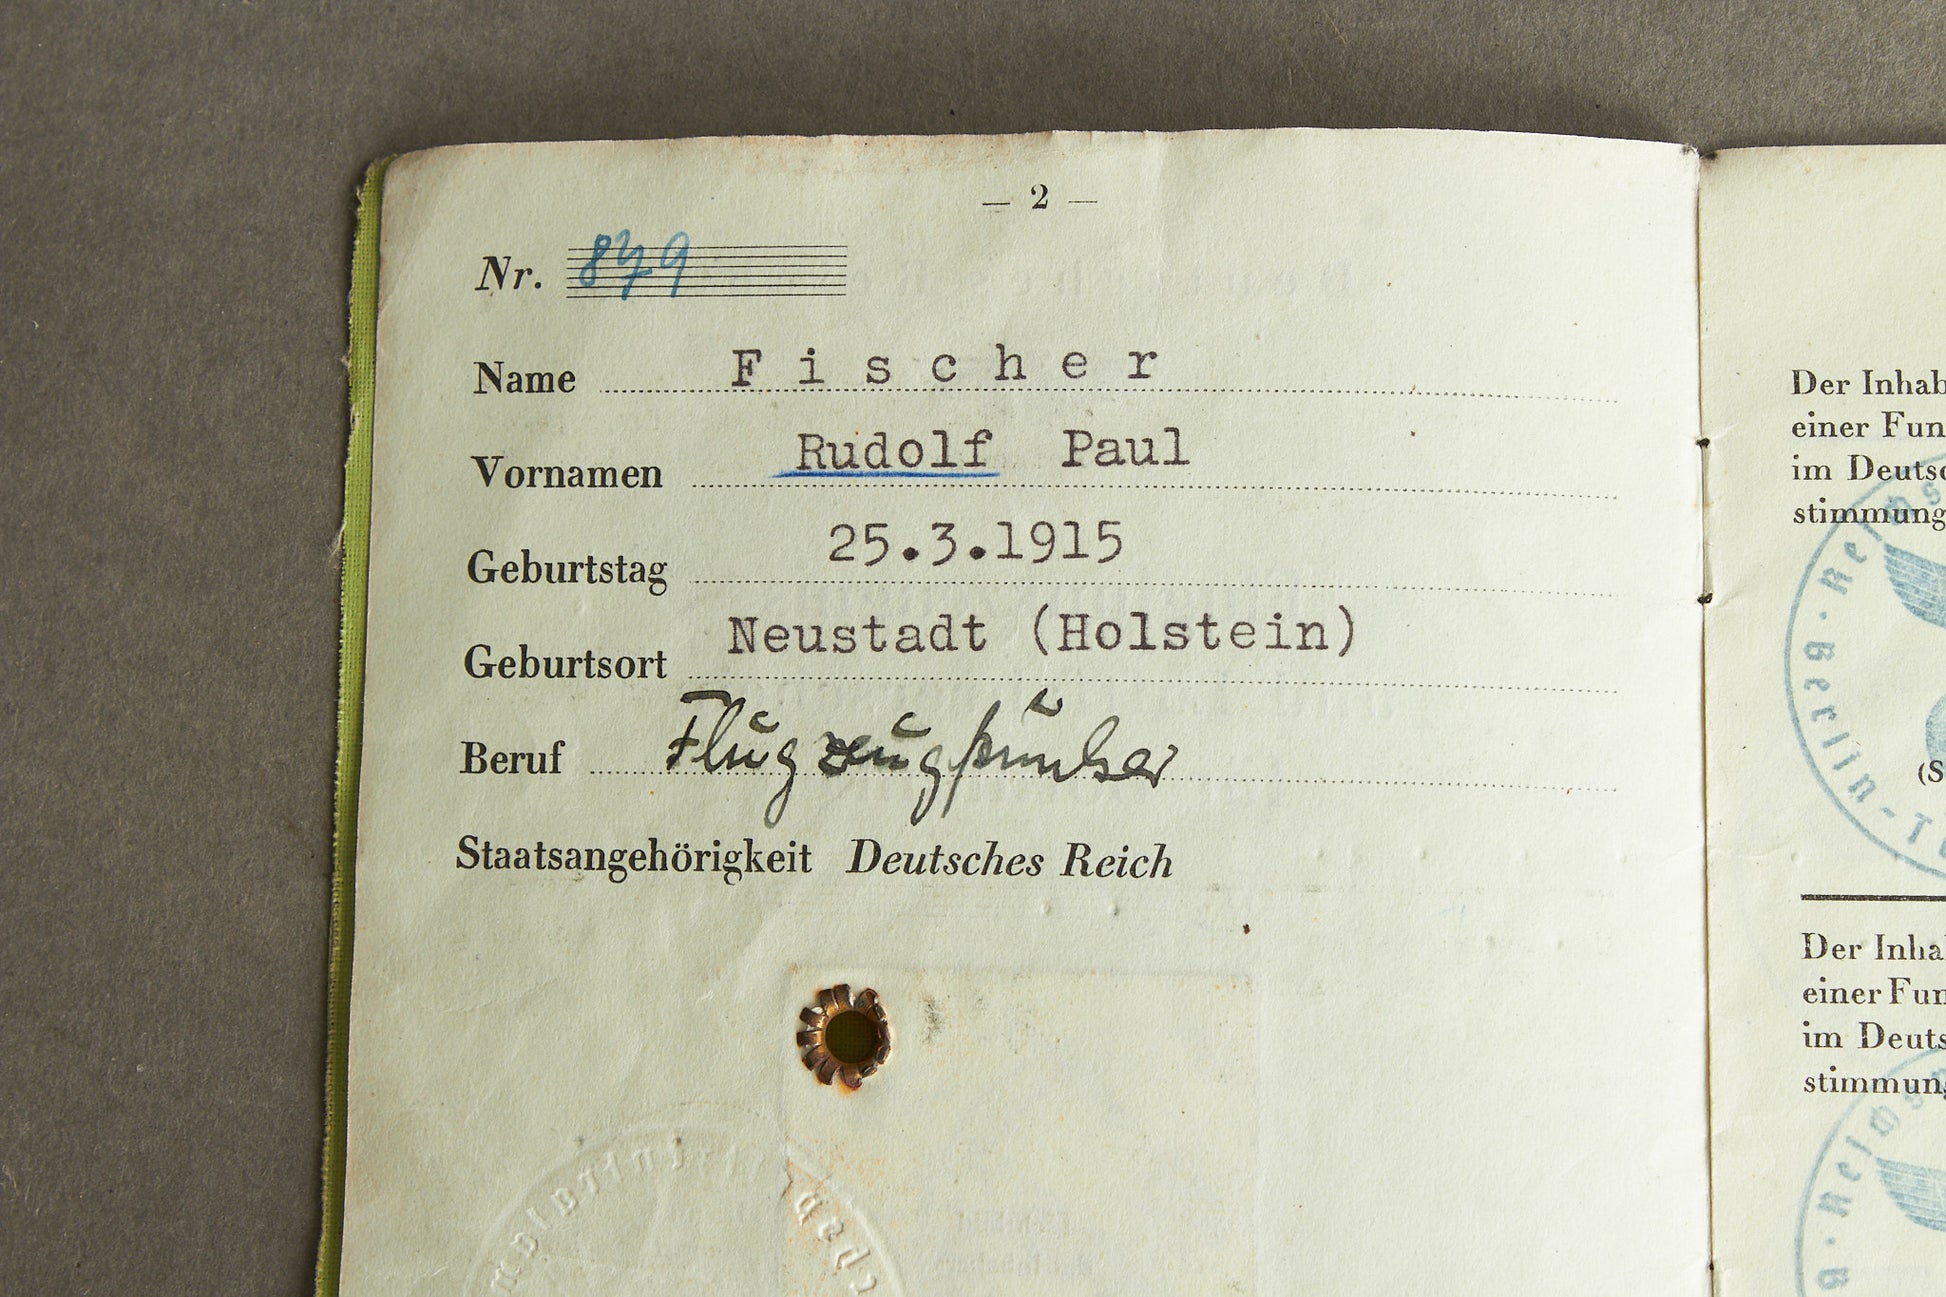 – 2 –
Nr. 879
Name Fischer
Vornamen Rudolf Paul
Geburtstag 25.3.1915
Geburtsort Neustadt (Holstein)
Beruf Flugzeugfunker
Staatsangehörigkeit Deutsches Reich
Der Inhab
einer Fun
im Deutsc
stimmung
Berlin
(S
Der Inha
einer Fun
im Deuts
stimmung